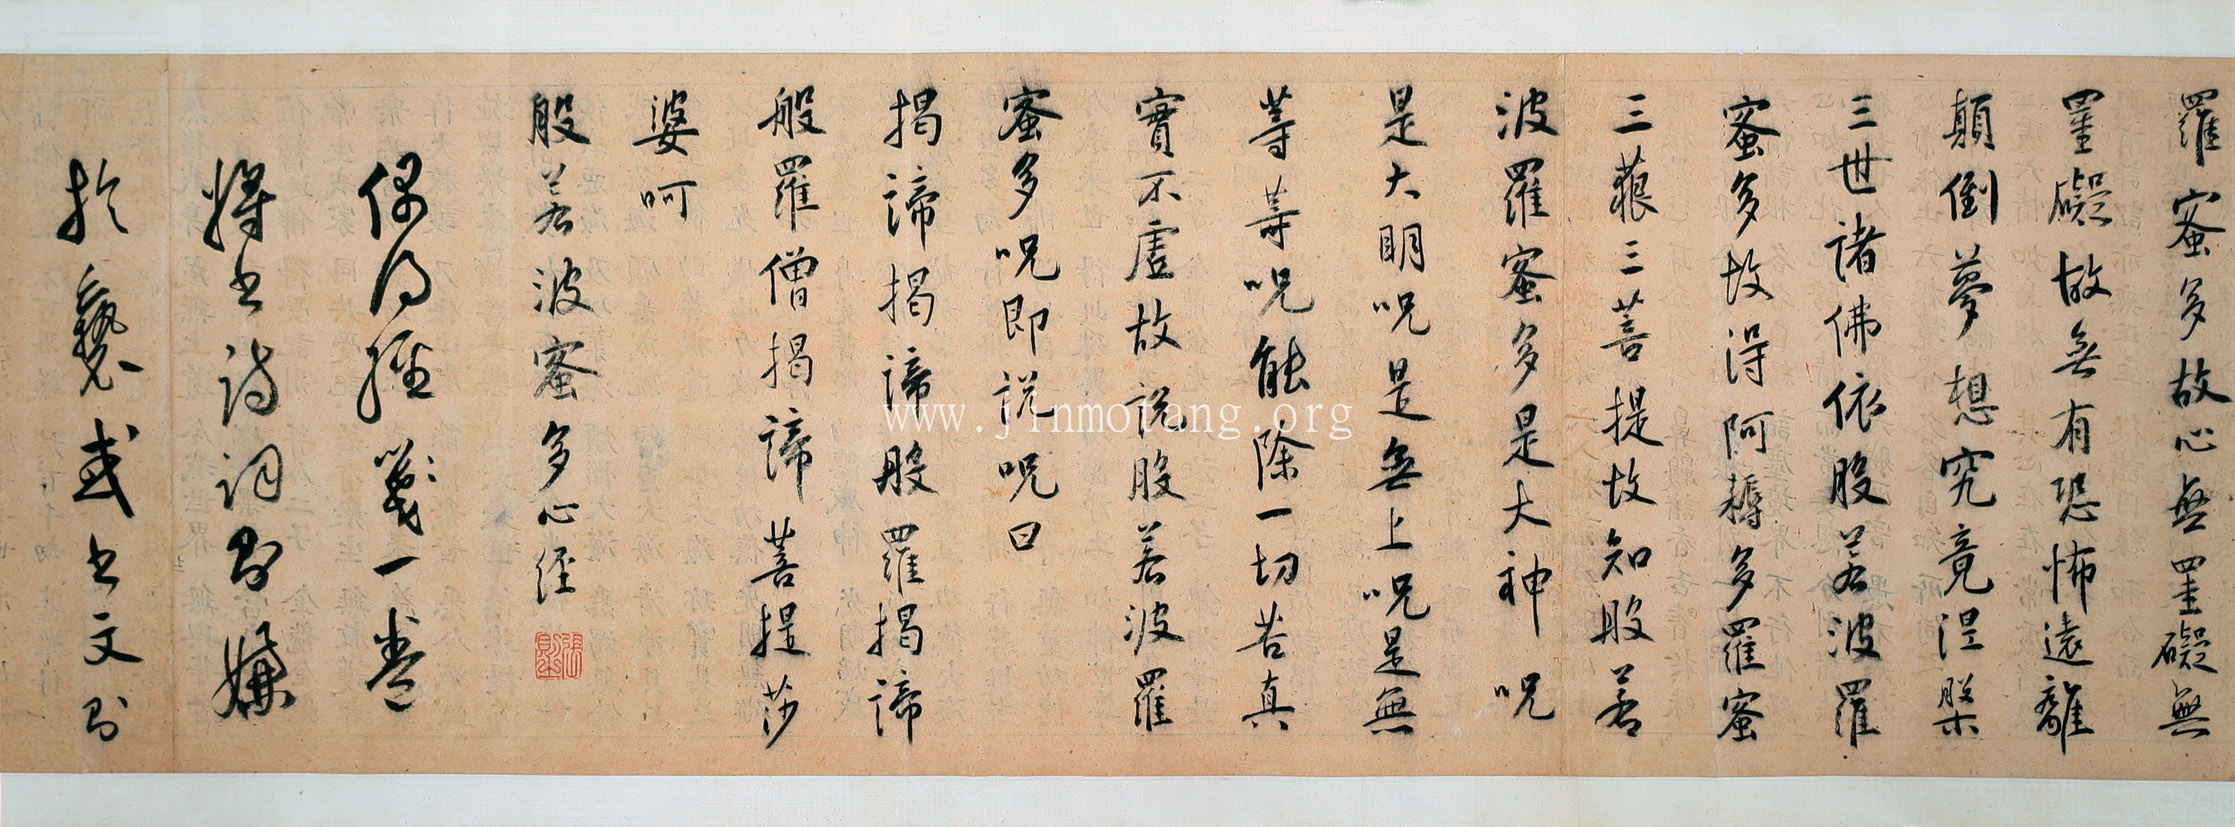 羅蜜多故心無罣礙無
罣礙故無有恐怖遠離
顛倒夢想究竟涅槃
三世諸佛依般若波羅
蜜多故得阿耨多羅蜜
三藐三菩提故知般若
波羅蜜多是大神呪
是大明呪是無上呪是無
等等呪能除一切苦真
實不虛故說般若波羅
蜜多呪即說呪曰
揭諦揭諦般羅揭諦
般羅僧揭諦菩提莎
婆呵
般若波蜜多心經
偶得經箋一卷
將書詩詞則嫌
於褻或書文則
www.jinmotang.org